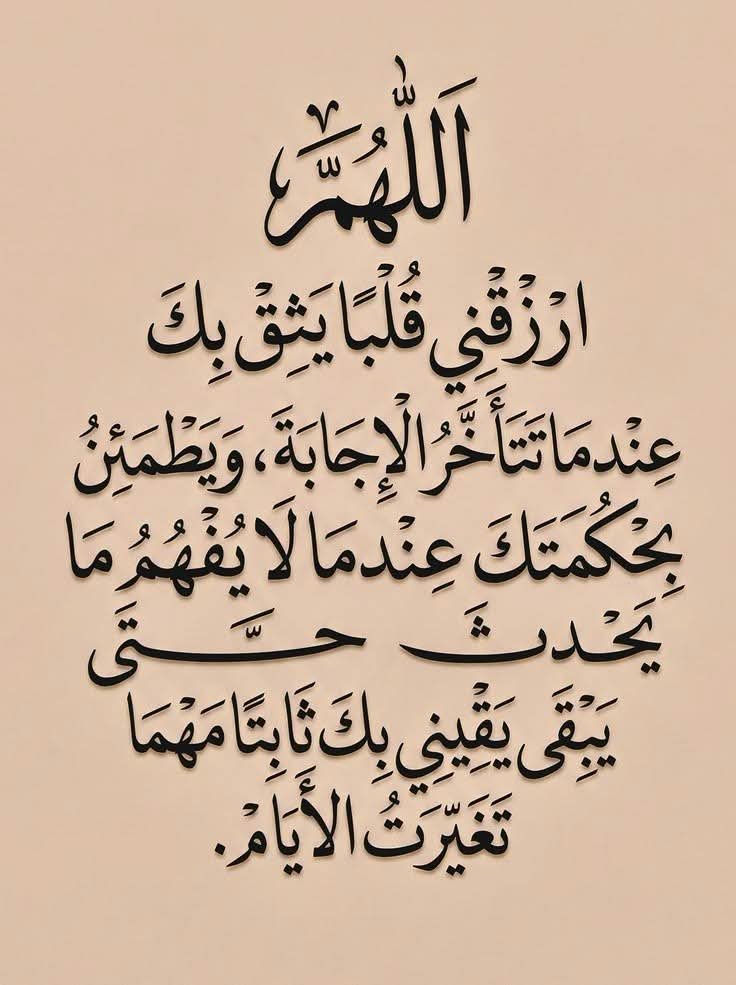 اَللّٰهُمَّ
ارْزُقْنِي قُلْبًا يَثِقْ بِكَ
عِنْدمَا تَتَأَخَّرُ الْإِجَابَةَ، وَيَطْمَئِنُ
بِحْكُمَتَكَ عِنْدمَا لَا يُفْهُمُ مَا
يَحْدثَ حَتَّى
يَبْقَى يَقِيْنِي بِكَ ثَابِتًا مَهْمَا
تَغَيّرَتُ الأَيَامْ.